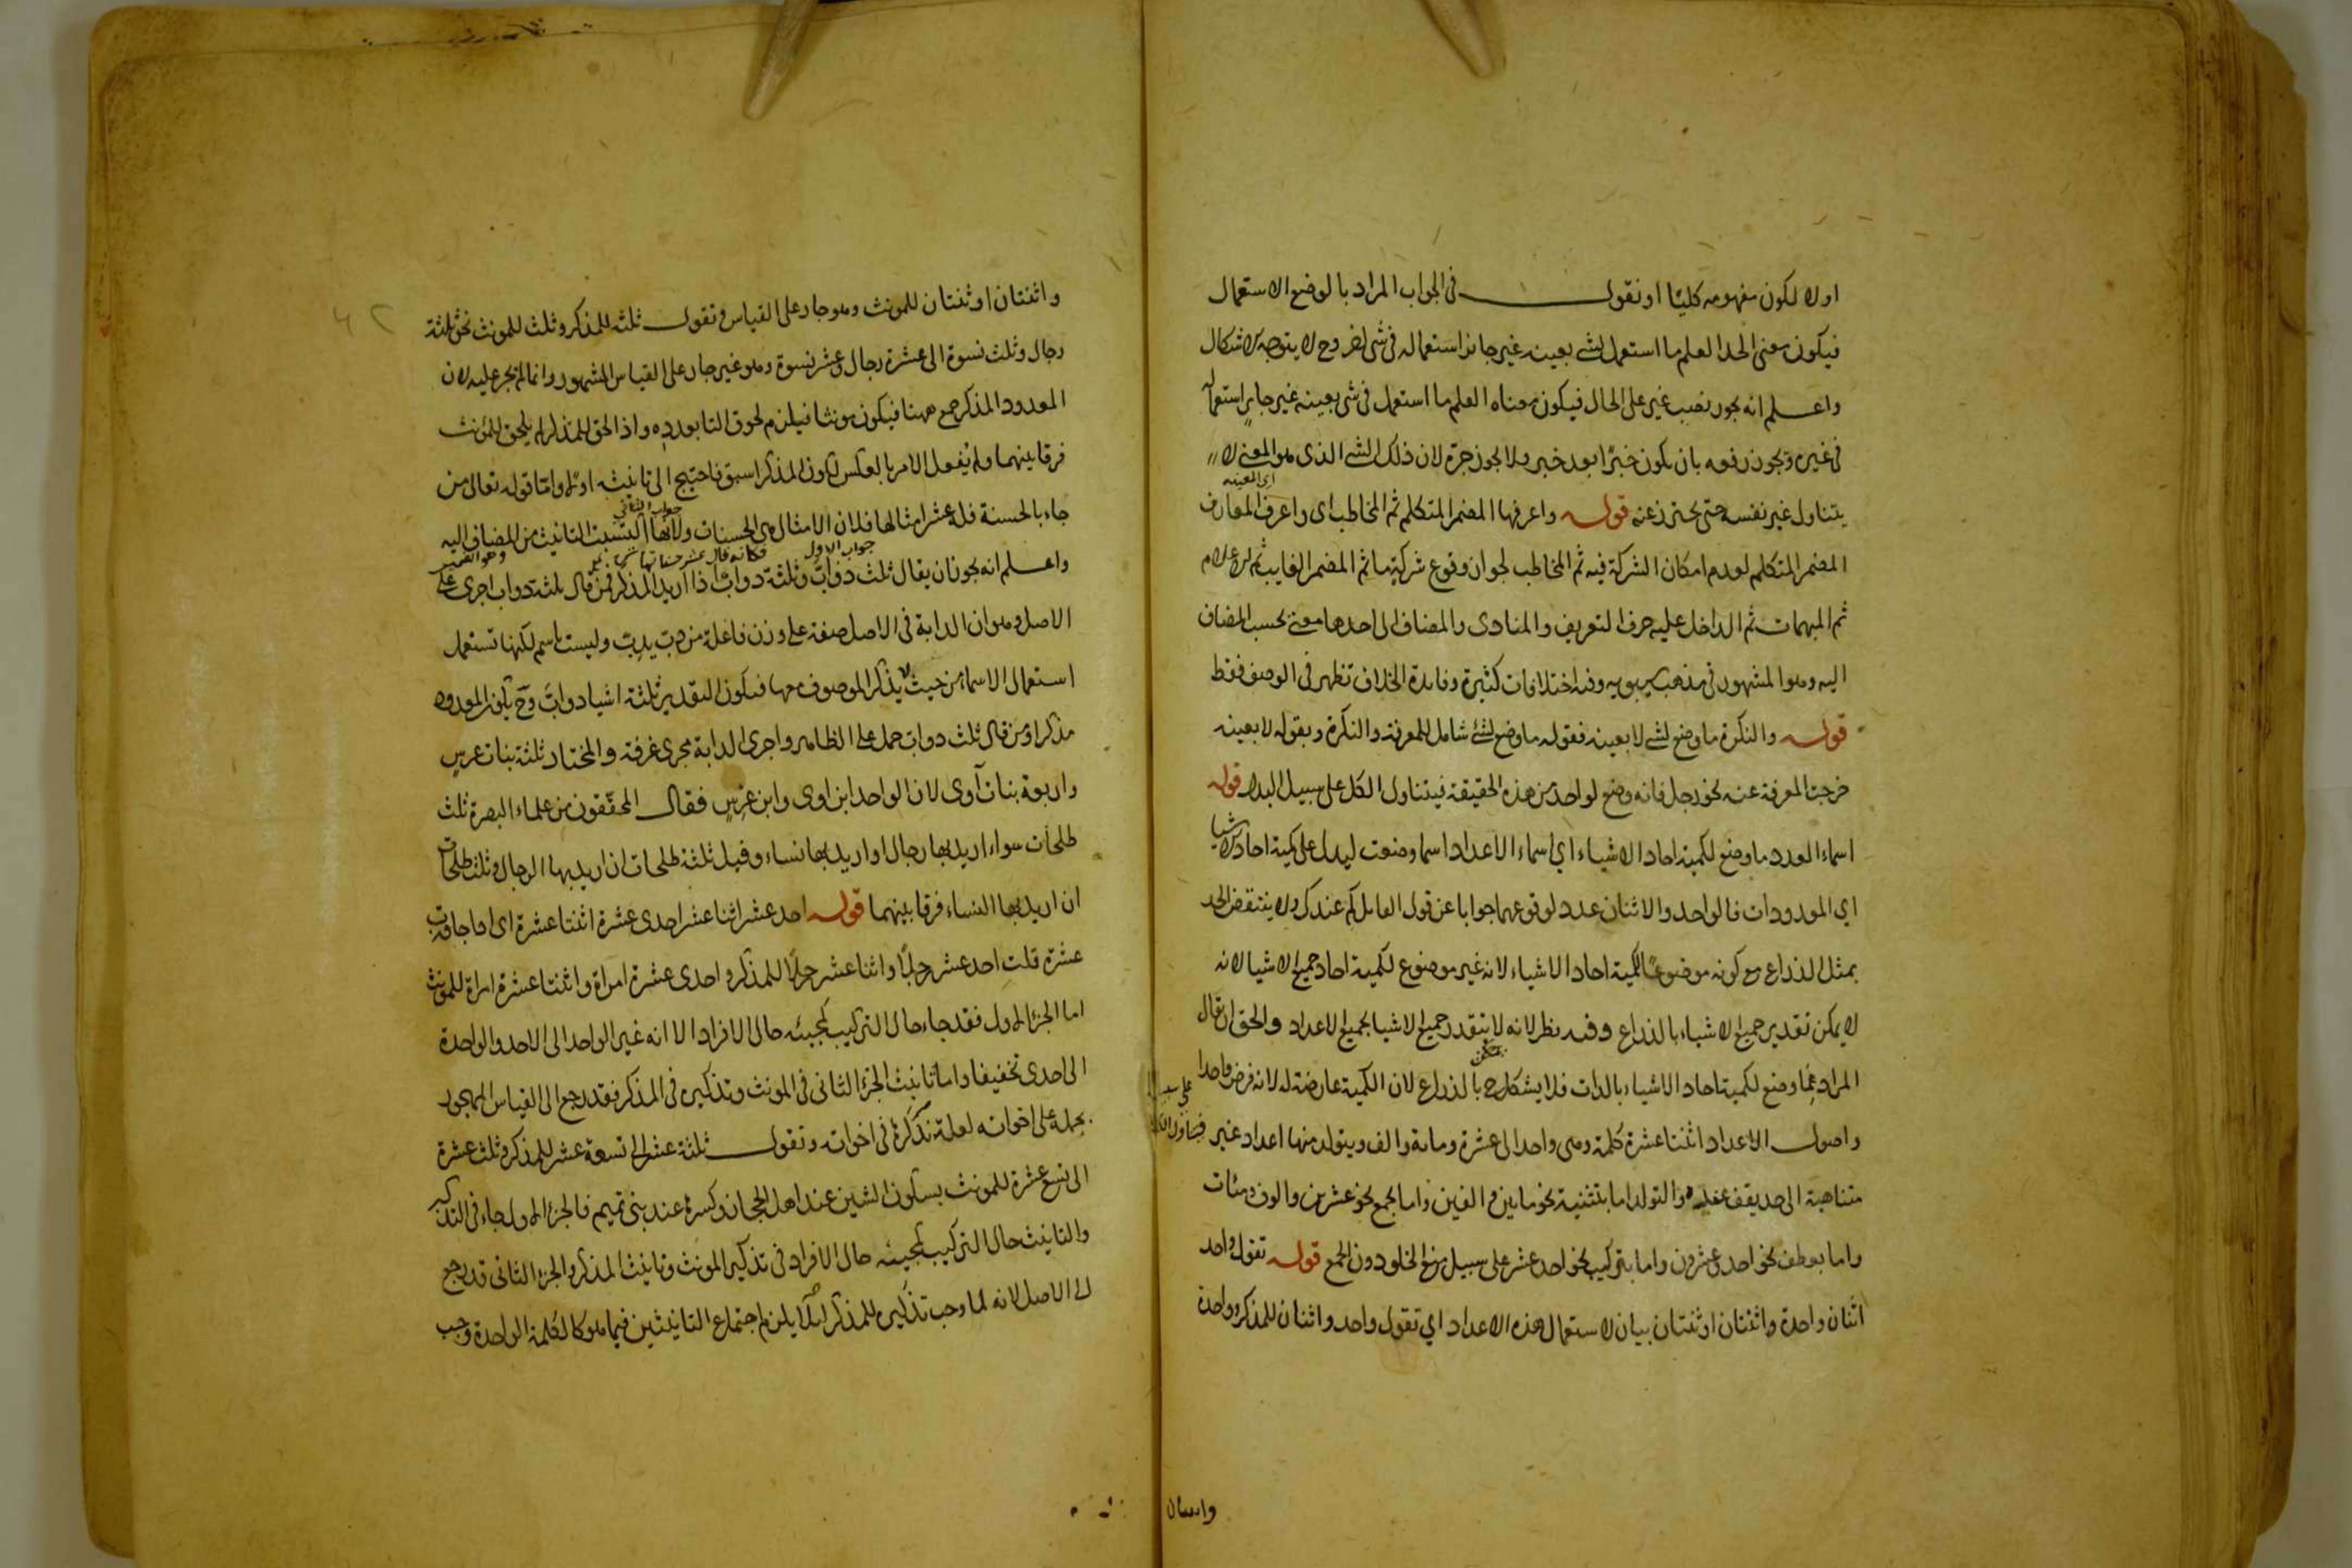 اولا لكون مفهومه كليا او نقول في الجواب المراد بالوضع الاستعمال
فيكون معنى الحد العلم ما استعمل لشيء بعينه غير جائز استعماله في شي اخر وح لا يتوجه الاشكال
واعلم انه يجوز نصب غير على الحال فيكون معناه العلم ما استعمل في شي بعينه غير جايز استعماله
في غيره ويجوز رفعه بان يكون خبرا بعد خبر ولا يجوز جره لان ذلك الشي الذي هو المعنى لا
اى المعينه
يتناول غير نفسه حتى يحترز عنه قوله واعرفها المضمر المتكلم ثم المخاطب اى واعرف المعارف
المضمر المتكلم لعدم امكان الشركة فيه ثم المخاطب لجواز وقوع شركة ما ثم المضمر الغايب ثم الاعلام
ثم المبهمات ثم الداخل عليه حرف التعريف والمنادى والمضاف الى احدها معنى بحسب المضاف
اليه وهو المشهور في مذهب سيبويه وفيه اختلافات كثيرة وفايدة الخلاف تظهر في الوصف فقط
قوله والنكرة ما وضع لشي لا بعينه فقوله ما وضع لشئ شامل للمعرفة والنكرة وبقوله لا بعينه
خرجت المعرفة عنه نحو رجل فانه وضع لواحد من هذه الحقيقة فيتناول الكل على سبيل البدل قوله
اسماء العدد ما وضع لكمية احاد الاشياء اي اسماء الاعداد اسما وضعت ليدل على كمية احاد الاشيا
اي المعدودات فالواحد والاثنان عدد لوقوعهما جوابا عن قول القايل كم عندك ولا ينتقض الحد
بمثل الذراع مع كونه موضوعا لكمية احاد الاشياء لانه غير موضوع لكمية احاد جميع الاشيا لانه
لا يمكن تقدير جميع الاشياء بالذراع وفيه نظر لانه لا يتقدر جميع الاشيا بجميع الاعداد والحق ان يقال
المراد بما وضع لكمية احاد الاشياء بالذات فلا يشكل ح بالذراع لان الكمية عارضة له لانه فرض واحدا
واصول الاعداد اثنتا عشرة كلمة وهي واحد الى عشرة ومائة والف ويتولد منها اعداد غير
متناهية الى حد يقف عنده والتولد اما بتثنية نحو ماتين والفين واما بجمع نحو عشرين والوف ومئات
واما بعطف نحو احد وعشرون واما بتركيب نحو احد عشر على سبيل منع الخلو دون الجمع قوله تقول واحد
اثنان واحدة واثنتان او ثنتان بيان لاستعمال هذه الاعداد اي تقول واحد واثنان للمذكر وواحدة
واثنتان
واثنتان او ثنتان للمونث وهو جار على القياس وتقول ثلثة للمذكر وثلث للمونث نحو ثلثة
رجال وثلث نسوة الى عشرة رجال وعشر نسوة وهو غير جار على القياس المشهور وانما لم يجر عليه لان
المعدود المذكر جمع ههنا فيكون مونثا فيلزم لحوق التا بعدده واذا لحق للمذكر لم يلحق للمؤنث
فرقا بينهما ولم يفعل الامر بالعكس لكون المذكر اسبق فاحتيج الى تانيثه اولا واما قوله تعالى من
جواب الثاني
جاء بالحسنة فله عشر امثالها فلان الامثال هي الحسنات ولانها اكتسبت التانيث من المضاف اليه
جواب الاول فكانه قال عشر حسنات وهو الضمير
واعلم انه يجوز ان يقال ثلث دواب وثلثة دواب اذا اريد المذكر فمن قال ثلثة دواب اجرى على
الاصل وهو ان الدابة في الاصل صفة على وزن فاعلة من دب يدب وليست باسم لكنها تستعمل
استعمال الاسما من حيث لا يذكر الموصوف معها فيكون التقدير ثلثة اشيا دواب وح يكون المعدود
مذكرا ومن قال ثلث دواب حمل على الظاهر واجرى الدابة مجرى غرفة والمختار ثلثة بنات عرس
واربعة بنات آوى لان الواحد ابن اوى وابن عرس فقال المحققون من علماء البصرة ثلث
طلحات سواء اريد بها رجال او اريد بها نساء وقيل ثلثة طلحات ان اريد بها الرجال وثلث طلحات
ان اريد بها النساء فرقا بينهما قوله احد عشر اثنا عشر احدى عشرة اثنتا عشرة اى اذا جاوزت
عشرة قلت احد عشر رجلا واثنا عشر رجلا للمذكر واحدى عشرة امراة واثنتا عشرة امراة للمونث
اما الجزء الاول فقد جاء حال التركيب كمجيئه حال الافراد الا انه غير الواحد الى الاحد والواحدة
الى احدى تخفيفا واما تانيث الجزء الثاني في المونث وتذكيره في المذكر فقد رجع الى القياس المهجور
بحمله على اخواته لعلة نذكرها في اخواته وتقول ثلثة عشر الى تسعة عشر للمذكر وثلث عشرة
الى تسع عشرة للمونث بسكون الشين عند اهل الحجاز وكسرها عند بني تميم فالجزء الاول جاء في التذكير
والتانيث حال التركيب كمجيئه حال الافراد في تذكير المونث وتانيث المذكر والجزء الثاني قد رجع
الى الاصل لانه لما وجب تذكيره للمذكر لئلا يلزم اجتماع التانيثين فيما هو كالكلمة الواحدة وجب